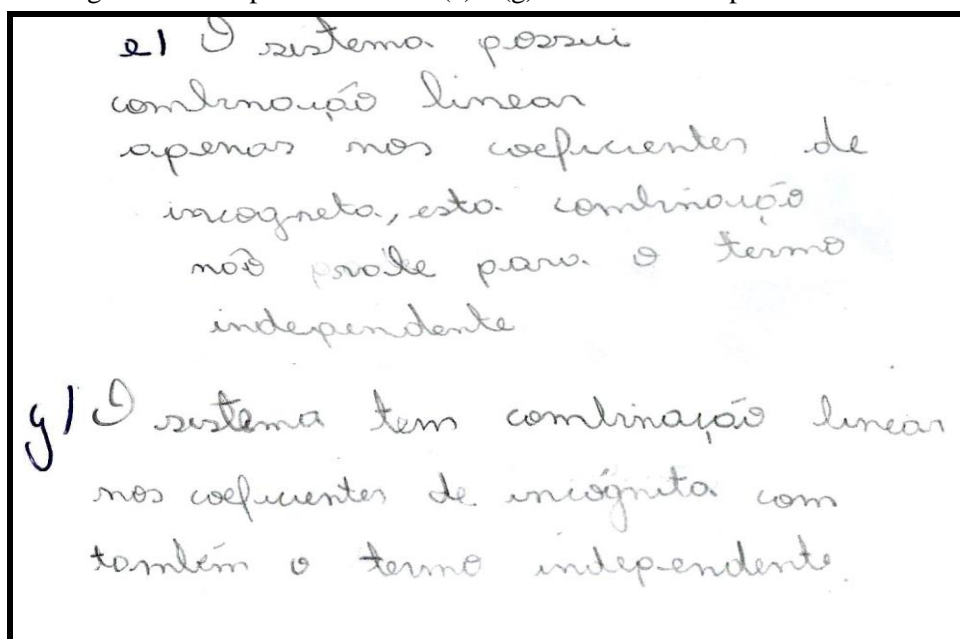 e) O sistema possui
combinação linear
apenas nos coeficientes de
incogneta, esta combinação
não vale para o termo
independente
g) O sistema tem combinação linear
nos coeficientes de incógnita com
também o termo independente.